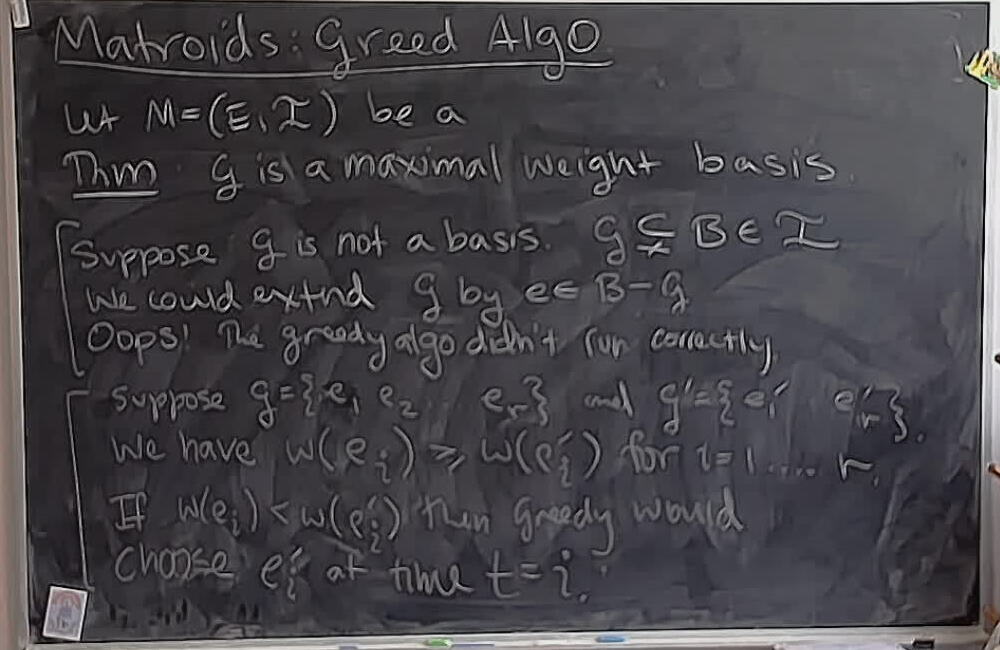 Matroids: Greed Algo
Let M=(E, I) be a
Thm G is a maximal weight basis.
Suppose G is not a basis. G ⊊ B ∈ I
We could extend G by e ∈ B - G
Oops! The greedy algo didn't run correctly.
Suppose G={e₁ e₂ eᵣ} and G'={e₁' eᵣ'}.
We have w(eᵢ) ⩾ w(eᵢ') for i=1.... r.
If w(eᵢ) < w(eᵢ') then Greedy would
Choose eᵢ' at time t=i.